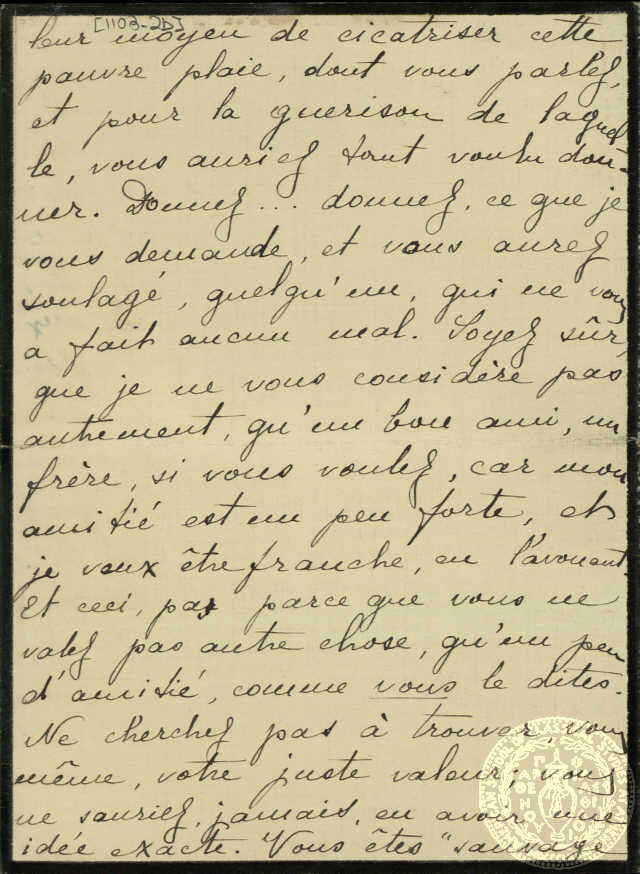 [1103-2b]
leur moyen de cicatriser cette
pauvre plaie, dont vous parlez,
et pour la guerison de laquel
le, vous auriez tout voulu don-
ner. Donnez... donnez, ce que je
vous demande, et vous aurez
soulagé, quelqu'un, qui ne vous
a fait aucun mal. Soyez sûr,
que je ne vous considère pas
autrement, qu'un bon ami, un
frère, si vous voulez, car mon
amitié est un peu forte, et
je veux être franche, en l'avouant.
Et ceci, pas parce que vous ne
valez pas autre chose, qu'un peu
d'amitié, comme vous le dites.
Ne cherchez pas à trouver, vous
même, votre juste valeur; vous
ne sauriez, jamais, en avoir une
idée exacte. Vous êtes "sauvage